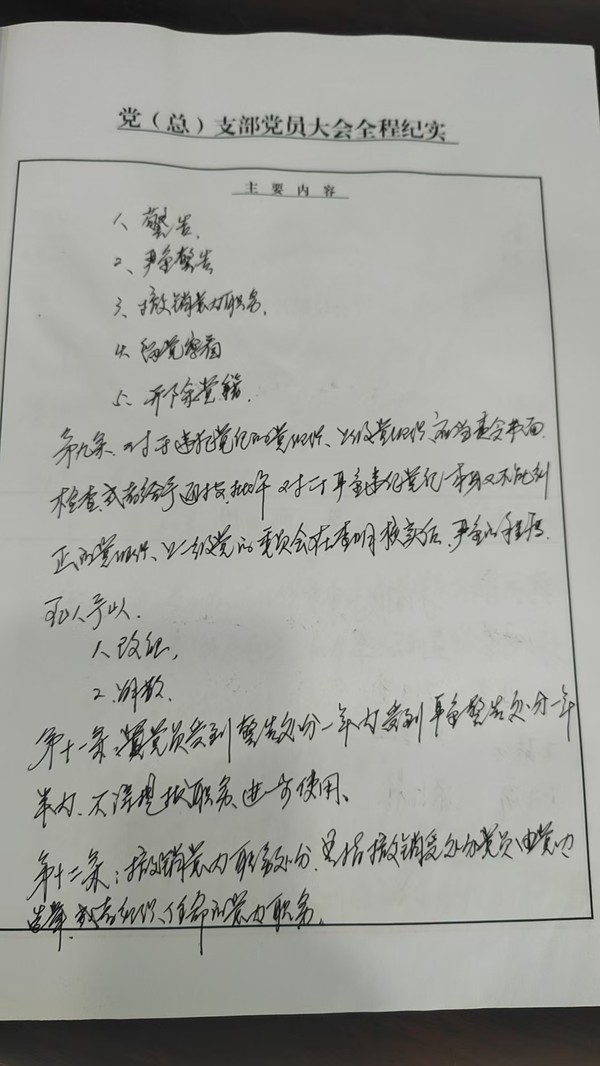 党（总）支部党员大会全程纪实
主要内容
1、警告、
2、严重警告
3、撤销党内职务、
4、留党察看
5、开除党籍、
第九条、对于违犯党纪的党组织、上级党组织、应当责令书面
检查或者给予通报批评 对于严重违犯党纪、本身又不能纠
正的党组织、上一级党的委员会在查明核实后、严重的程度、
可以予以、
1、改组、
2、解散、
第十一条：党员受到警告处分一年内 受到严重警告处分一年
半内、不得提拔职务、进一步使用、
第十二条：撤销党内职务处分、是指撤销受处分党员由党内
选举 或者组织、任命的党内职务、